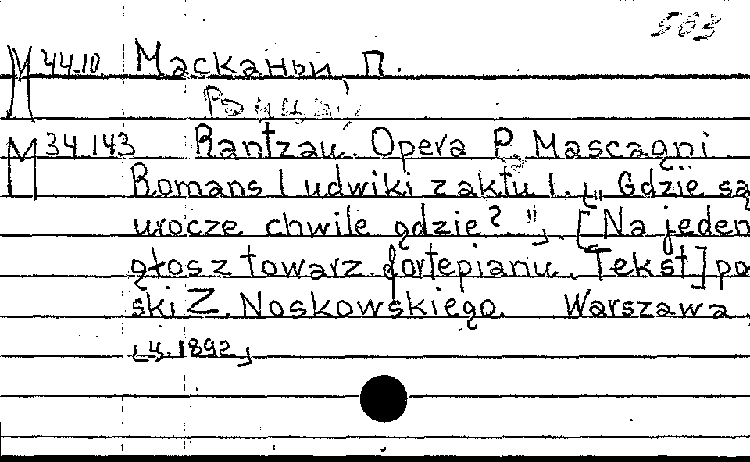 503
М 44.10 Масканьи, П.
М 34.143 Rantzau. Opera P. Mascagni
Romans Ludwiki z aktu I. „Gdzie są
urocze chwile gdzie?" [Na jeden
głos z towarz. fortepianu. Tekst] po
ski Z. Noskowskiego. Warszawa,
[ц. 1892]